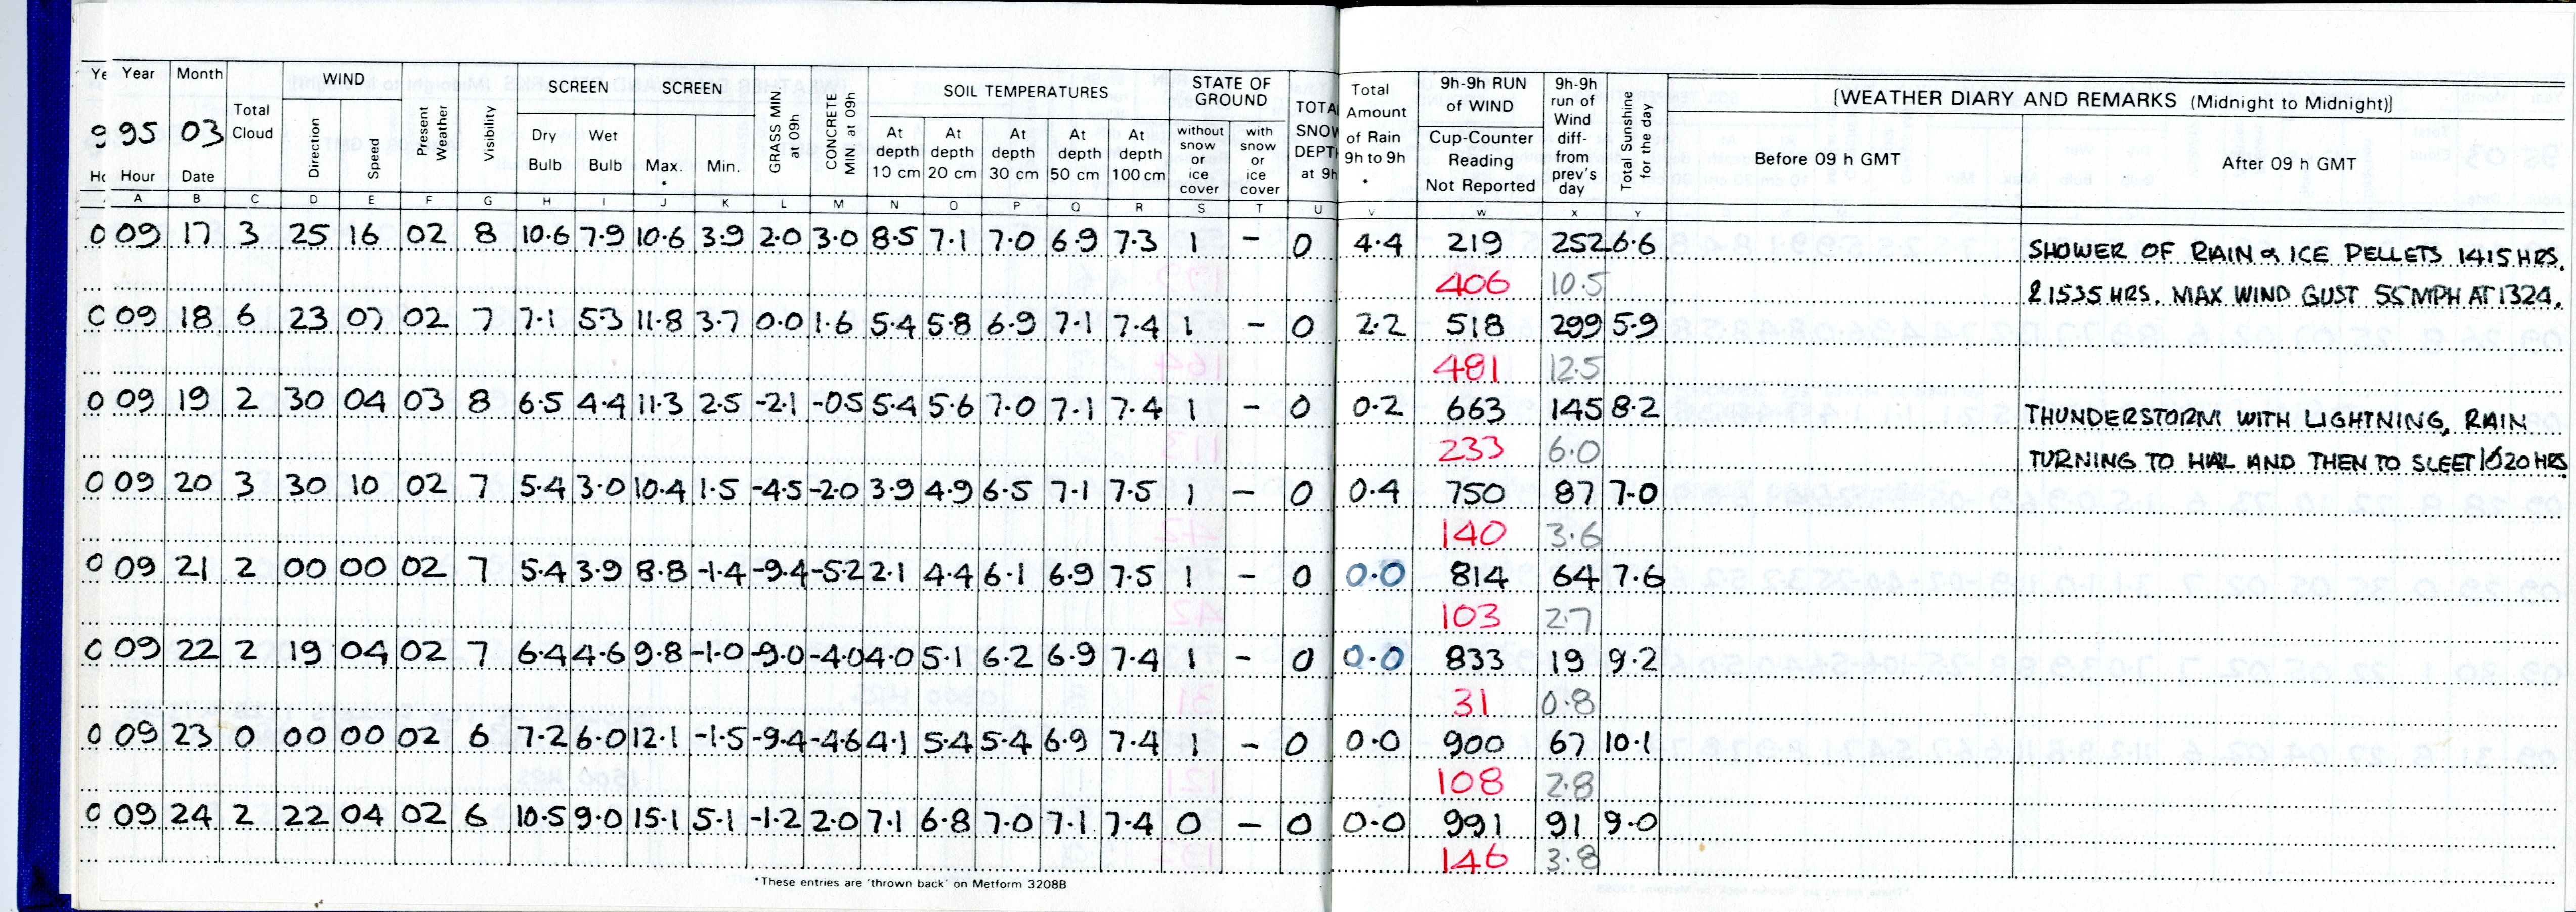 Ye Year Month Total Cloud WIND Present Weather Visibility SCREEN SCREEN GRASS MIN at 09h CONCRETE MIN at 09h SOIL TEMPERATURES STATE OF GROUND TOTAL SNOW DEPTH at 9h Total Amount of Rain 9h to 9h * 9h-9h RUN of WIND 9h-9h run of Wind diff- from prev's day Total Sunshine for the day [WEATHER DIARY AND REMARKS (Midnight to Midnight)]
9 95 03 Direction Speed Dry Bulb Wet Bulb Max. * Min. At depth 10 cm At depth 20 cm At depth 30 cm At depth 50 cm At depth 100 cm without snow or ice cover with snow or ice cover Cup-Counter Reading Not Reported Before 09 h GMT After 09 h GMT
Ho Hour Date
A B C D E F G H I J K L M N O P Q R S T U V W X Y
0 09 17 3 25 16 02 8 10.6 7.9 10.6 3.9 2.0 3.0 8.5 7.1 7.0 6.9 7.3 1 - 0 4.4 219 252 6.6 SHOWER OF RAIN & ICE PELLETS 1415 HRS.
406 10.5 & 1535 HRS. MAX WIND GUST 55 MPH AT 1324.
0 09 18 6 23 07 02 7 7.1 5.3 11.8 3.7 0.0 1.6 5.4 5.8 6.9 7.1 7.4 1 - 0 2.2 518 299 5.9
481 12.5
0 09 19 2 30 04 03 8 6.5 4.4 11.3 2.5 -2.1 -0.5 5.4 5.6 7.0 7.1 7.4 1 - 0 0.2 663 145 8.2 THUNDERSTORM WITH LIGHTNING, RAIN
233 6.0 TURNING TO HAIL AND THEN TO SLEET 1620 HRS
0 09 20 3 30 10 02 7 5.4 3.0 10.4 1.5 -4.5 -2.0 3.9 4.9 6.5 7.1 7.5 1 - 0 0.4 750 87 7.0
140 3.6
0 09 21 2 00 00 02 7 5.4 3.9 8.8 -1.4 -9.4 -5.2 2.1 4.4 6.1 6.9 7.5 1 - 0 0.0 814 64 7.6
103 2.7
0 09 22 2 19 04 02 7 6.4 4.6 9.8 -1.0 -9.0 -4.0 4.0 5.1 6.2 6.9 7.4 1 - 0 0.0 833 19 9.2
31 0.8
0 09 23 0 00 00 02 6 7.2 6.0 12.1 -1.5 -9.4 -4.6 4.1 5.4 5.4 6.9 7.4 1 - 0 0.0 900 67 10.1
108 2.8
0 09 24 2 22 04 02 6 10.5 9.0 15.1 5.1 -1.2 2.0 7.1 6.8 7.0 7.1 7.4 0 - 0 0.0 991 91 9.0
146 3.8
*These entries are 'thrown back' on Metform 3208B